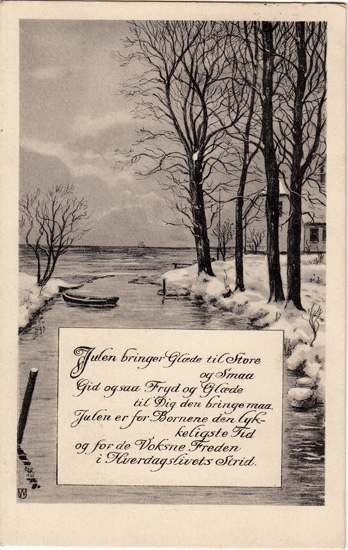 Julen bringer Glæde til Store
og Smaa
Gid ogsaa Fryd og Glæde
til Dig den bringe maa.
Julen er for Børnene den lyk-
keligste Tid
og for de Voksne Freden
i Hverdagslivets Strid.